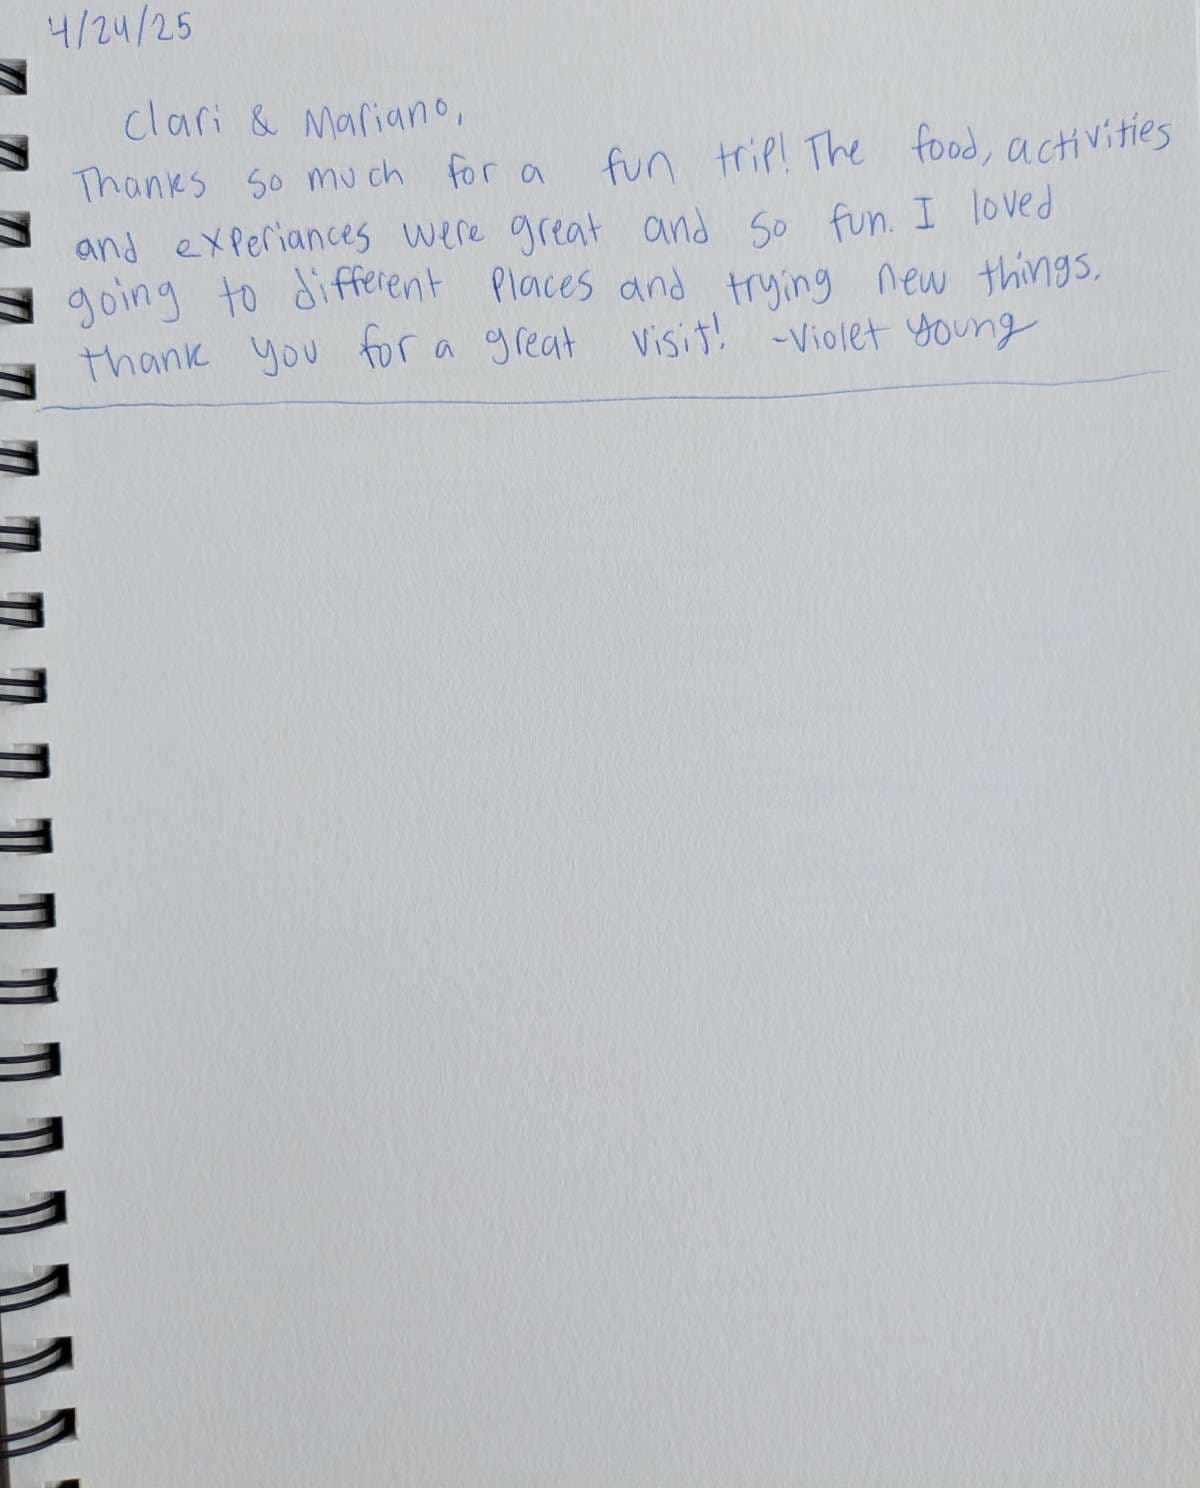 4/24/25
Clari & Mariano,
Thanks so much for a fun trip! The food, activities
and experiances were great and so fun. I loved
going to different places and trying new things.
thank you for a great visit! -Violet Young